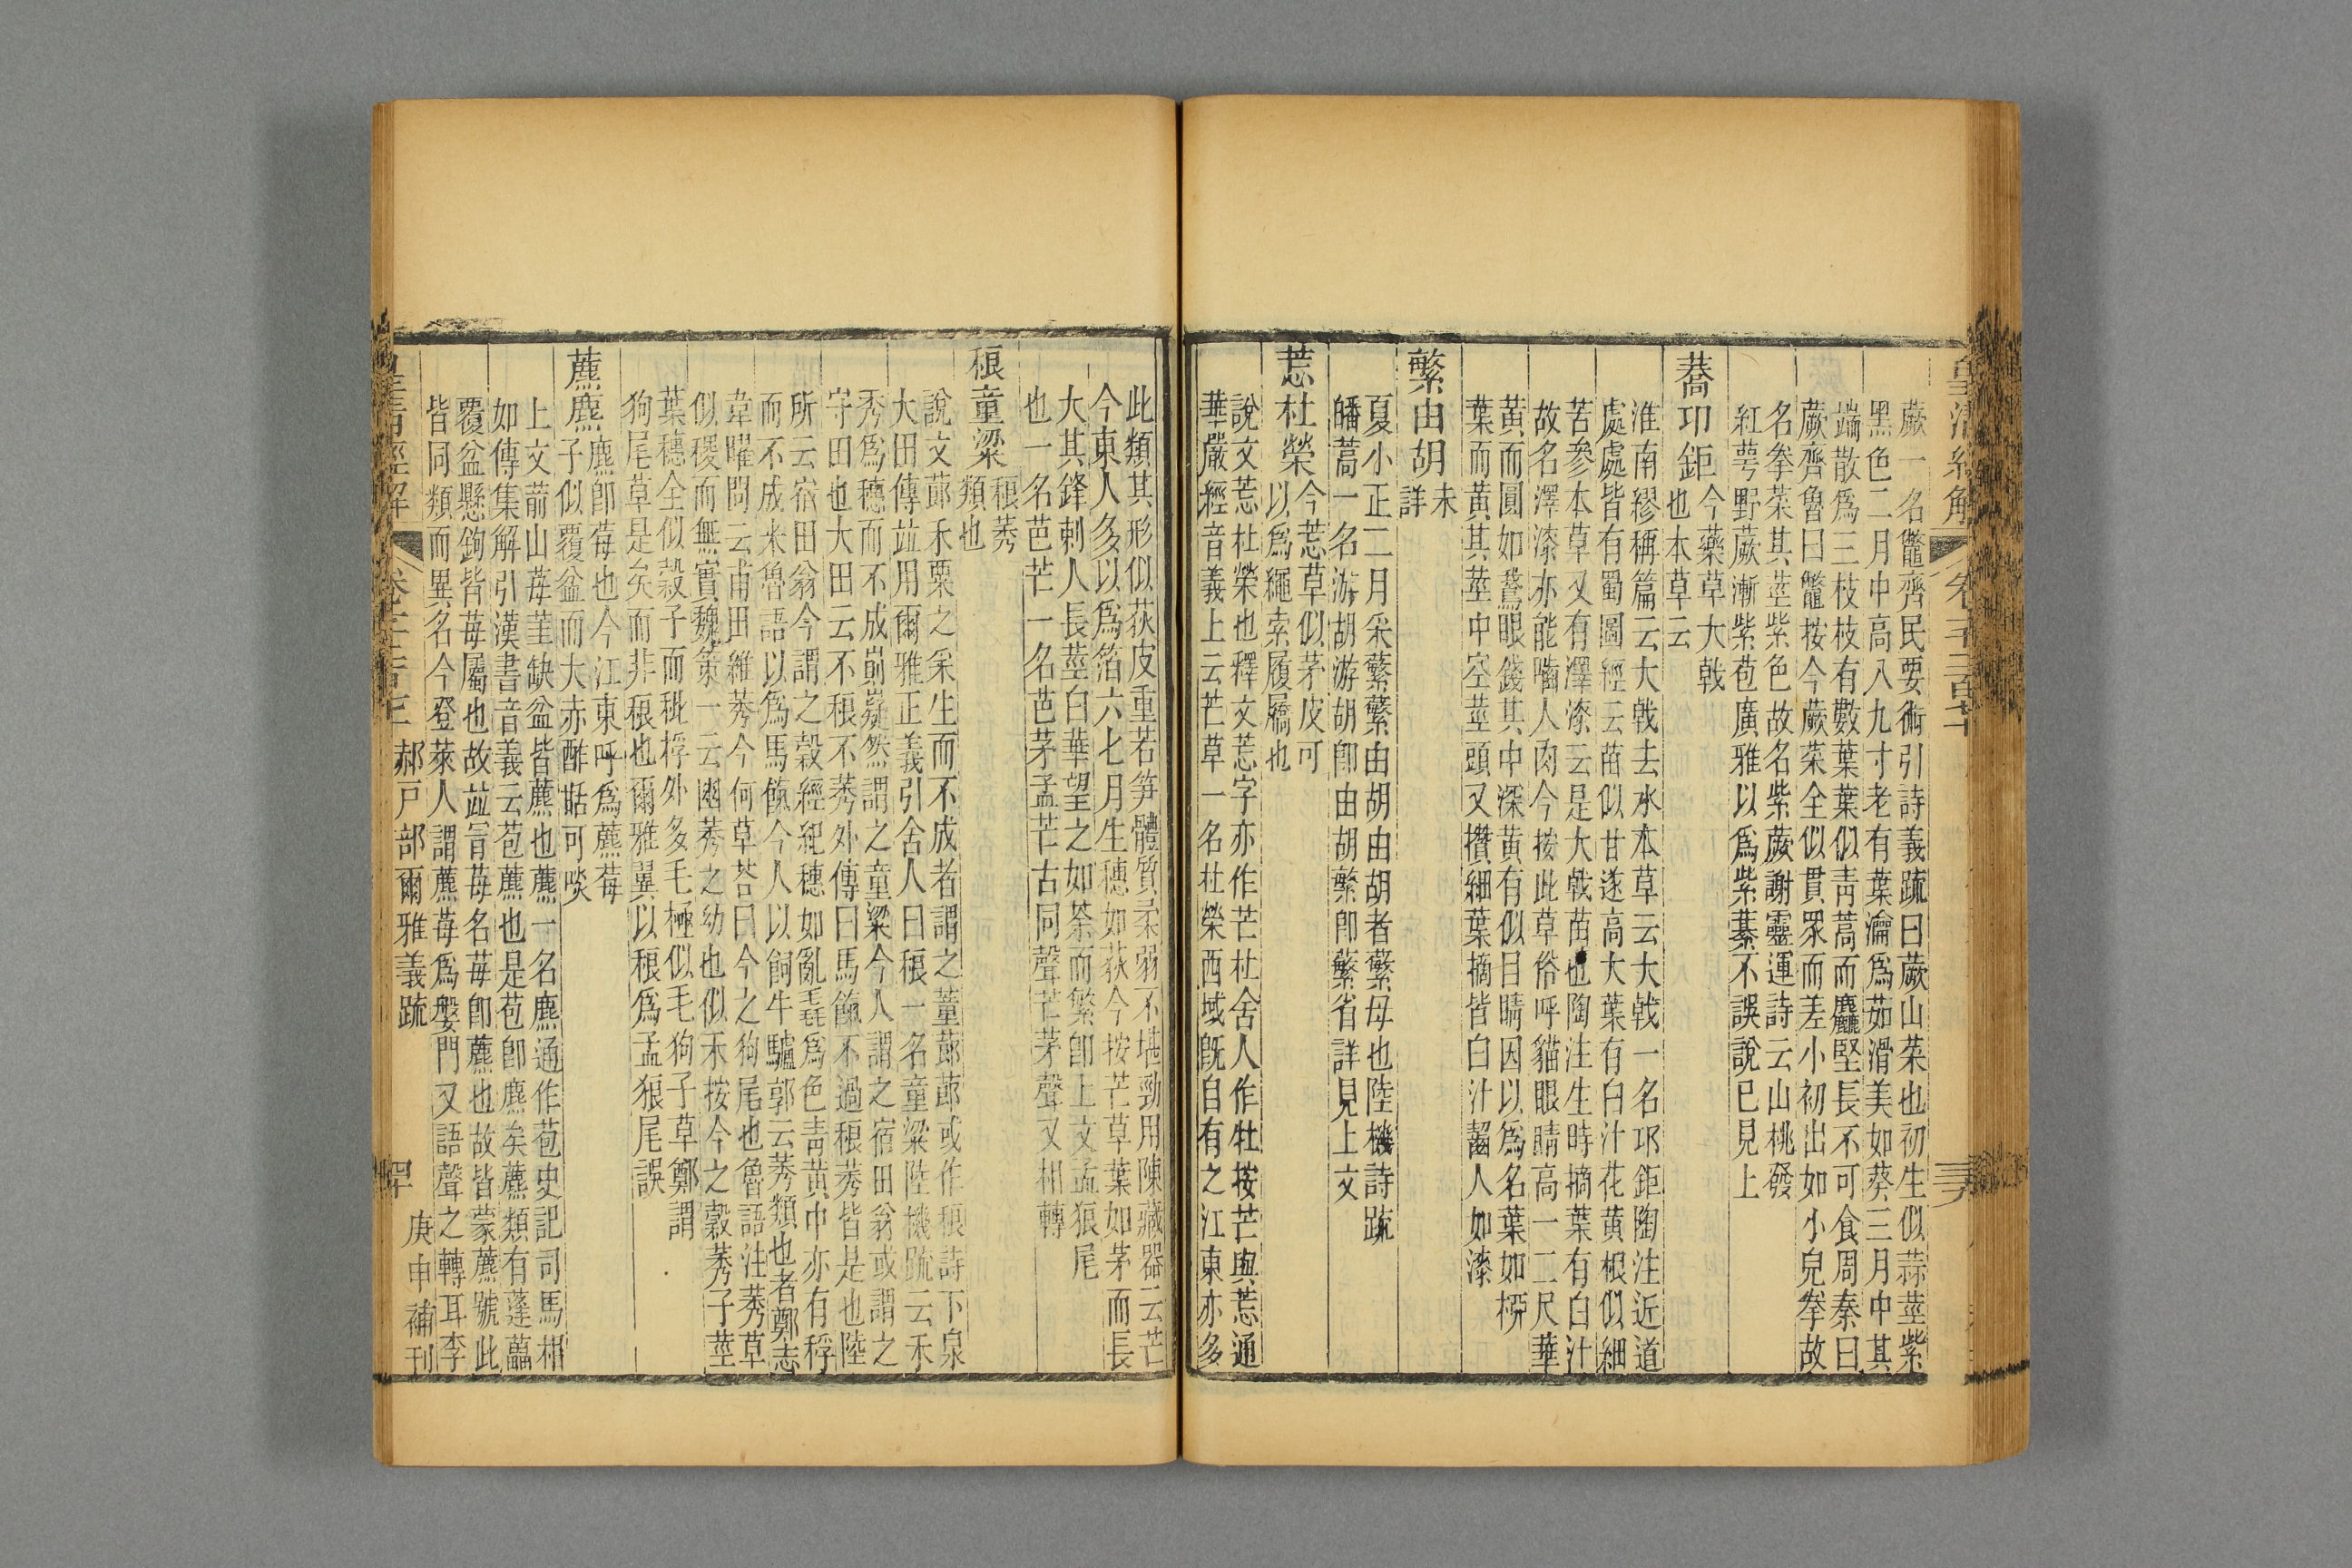 皇清經解
蕨一名虌齊民要術引詩義疏曰蕨山菜也初生似蒜莖紫
黑色二月中高八九寸老有葉瀹爲茹滑美如葵三月中其
端散爲三枝枝有數葉葉似青蒿而麤堅長不可食周秦曰
蕨齊魯曰虌按今蕨菜全似貫眾而差小初出如小兒拳故
名拳菜其莖紫色故名紫蕨謝靈運詩云山桃發
紅萼野蕨漸紫苞廣雅以爲紫綦不誤說已見上
蕎邛鉅
今藥草大戟
也本草云
淮南繆稱篇云大戟去水本草云大戟一名邛鉅陶注近道
處處皆有蜀圖經云苗似甘遂高大葉有白汁花黃根似細
苦參本草又有澤漆云是大戟苗也陶注生時摘葉有白汁
故名澤漆亦能嚙人肉今按此草俗呼貓眼睛高一二尺華
黃而圓如鵞眼錢其中深黃有似目睛因以爲名葉如柳
葉而黃其莖中空莖頭又攢細葉摘皆白汁齧人如漆
繁由胡
未
詳
夏小正二月采蘩蘩由胡由胡者蘩母也陸機詩疏
皤蒿一名游胡游胡卽由胡繁卽蘩省詳見上文
莣杜榮
今莣草似茅皮可
以爲繩索履屩也
說文莣杜榮也釋文莣字亦作芒杜舍人作牡按芒與莣通
華嚴經音義上云芒草一名杜榮西域旣自有之江東亦多
此類其形似荻皮重若笋體質柔弱不堪勁用陳藏器云芒
今東人多以爲箔六七月生穗如荻今按芒草葉如茅而長
大其鋒刺人長莖白華望之如荼而繁卽上文孟狼尾
也一名芭芒一名芭茅孟芒古同聲芒茅聲又相轉
稂童粱
稂莠
類也
說文蓈禾粟之采生而不成者謂之蕫蓈蓈或作稂詩下泉
大田傳竝用爾雅正義引舍人曰稂一名童粱陸機疏云禾
秀爲穗而不成崱嶷然謂之童粱今人謂之宿田翁或謂之
守田也大田云不稂不莠外傳曰馬餼不過稂莠皆是也陸
所云宿田翁今謂之穀經紀穗如亂毳爲色青黃中亦有稃
而不成米魯語以爲馬餼今人以飼牛驢郭云莠類也者鄭志
韋曜問云甫田維莠今何草荅曰今之狗尾也魯語注莠草
似稷而無實魏策一云幽莠之幼也似禾按今之穀莠子莖
葉穗全似穀子而秕稃外多毛極似毛狗子草鄭謂
狗尾草是矣而非稂也爾雅翼以稂爲孟狼尾誤
藨麃
麃卽莓也今江東呼爲藨莓
子似覆盆而大赤酢甛可啖
上文葥山莓堇缺盆皆藨也藨一名麃通作苞史記司馬相
如傳集解引漢書音義云苞藨也是苞卽麃矣藨類有蓬蘽
覆盆懸鉤皆莓屬也故竝冒莓名莓卽藨也故皆蒙藨號此
皆同類而異名今登萊人謂藨莓爲槃門又語聲之轉耳李
皇清經解
郝戶部爾雅義疏
庚申補刊